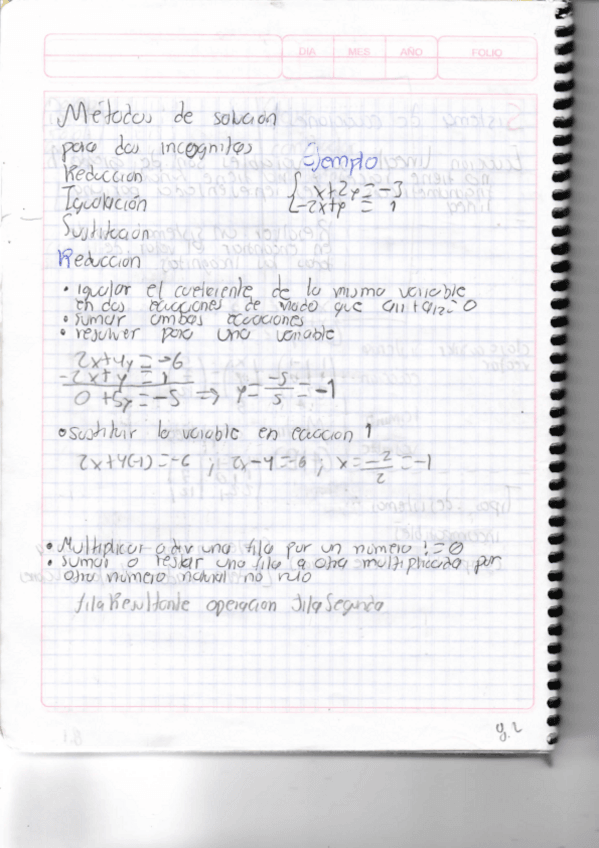 DIA MES AÑO FOLIO
Métodos de solución
para dos incognitas
Reducción
Igualación
Sustitución
Ejemplo
x+2y=-3
-2x+y= 1
Reducción
• igualar el coeficiente de la misma variable
en dos ecuaciones de modo que a11+a12=0
• sumar ambas ecuaciones
• resolver para una variable
2x+4y=-6
-2x+y= 1
0 +5y=-5 => y= -5/5 = -1
• sustituir la variable en ecuación 1
2x+4(-1)=-6 ; 2x-4=-6 ; x= -2/2 = -1
• Multiplicar o div una fila por un número != 0
• Sumar o restar una fila a otra multiplicada por
otro número natural no nulo
filaResultante operacion filaSegunda
9.2